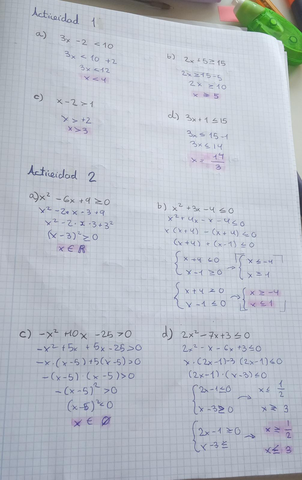 Actividad 1
a) 3x - 2 < 10
3x < 10 + 2
3x < 12
x < 4
b) 2x + 5 ≥ 15
2x ≥ 15 - 5
2x ≥ 10
x ≥ 5
c) x - 2 > 1
x > + 2
x > 3
d) 3x + 1 ≤ 15
3x ≤ 15 - 1
3x ≤ 14
Actividad 2
a) x² - 6x + 9 ≥ 0
x² - 2·x·3 + 9
x² - 2·x·3 + 3²
(x - 3)² ≥ 0
x ∈ R
b) x² + 3x - 4 ≤ 0
x² + 4x - x - 4 ≤ 0
x(x + 4) - (x + 4) ≤ 0
(x + 4) + (x - 1) ≤ 0
{ x + 4 ≤ 0 → { x ≤ -4
x - 1 ≥ 0 x ≥ 1
{ x + 4 ≥ 0 → { x ≥ -4
x - 1 ≤ 0 x ≤ 1
c) -x² + 10x - 25 > 0
-x² + 5x + 5x - 25 > 0
-x·(x - 5) + 5(x - 5) > 0
-(x - 5)·(x - 5) > 0
-(x - 5)² > 0
(x - 5)² < 0
x ∈ Ø
d) 2x² - 7x + 3 ≤ 0
2x² - x - 6x + 3 ≤ 0
x·(2x - 1) - 3(2x - 1) ≤ 0
(2x - 1)·(x - 3) ≤ 0
{ 2x - 1 ≤ 0 → x ≤ 1/2
x - 3 ≥ 0 x ≥ 3
{ 2x - 1 ≥ 0 → x ≥ 1/2
x - 3 ≤ x ≤ 3